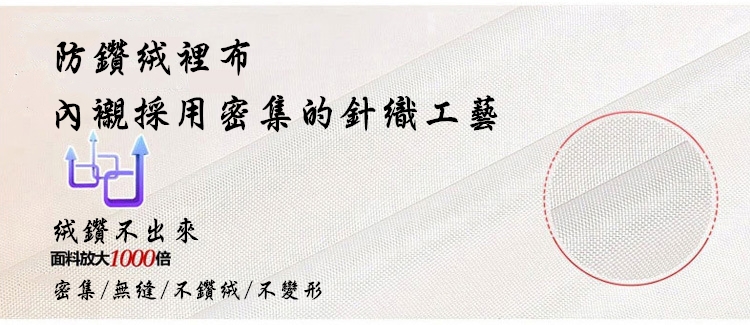 防鑽絨裡布
內襯採用密集的針織工藝
絨鑽不出來
面料放大1000倍
密集/無縫/不鑽絨/不變形